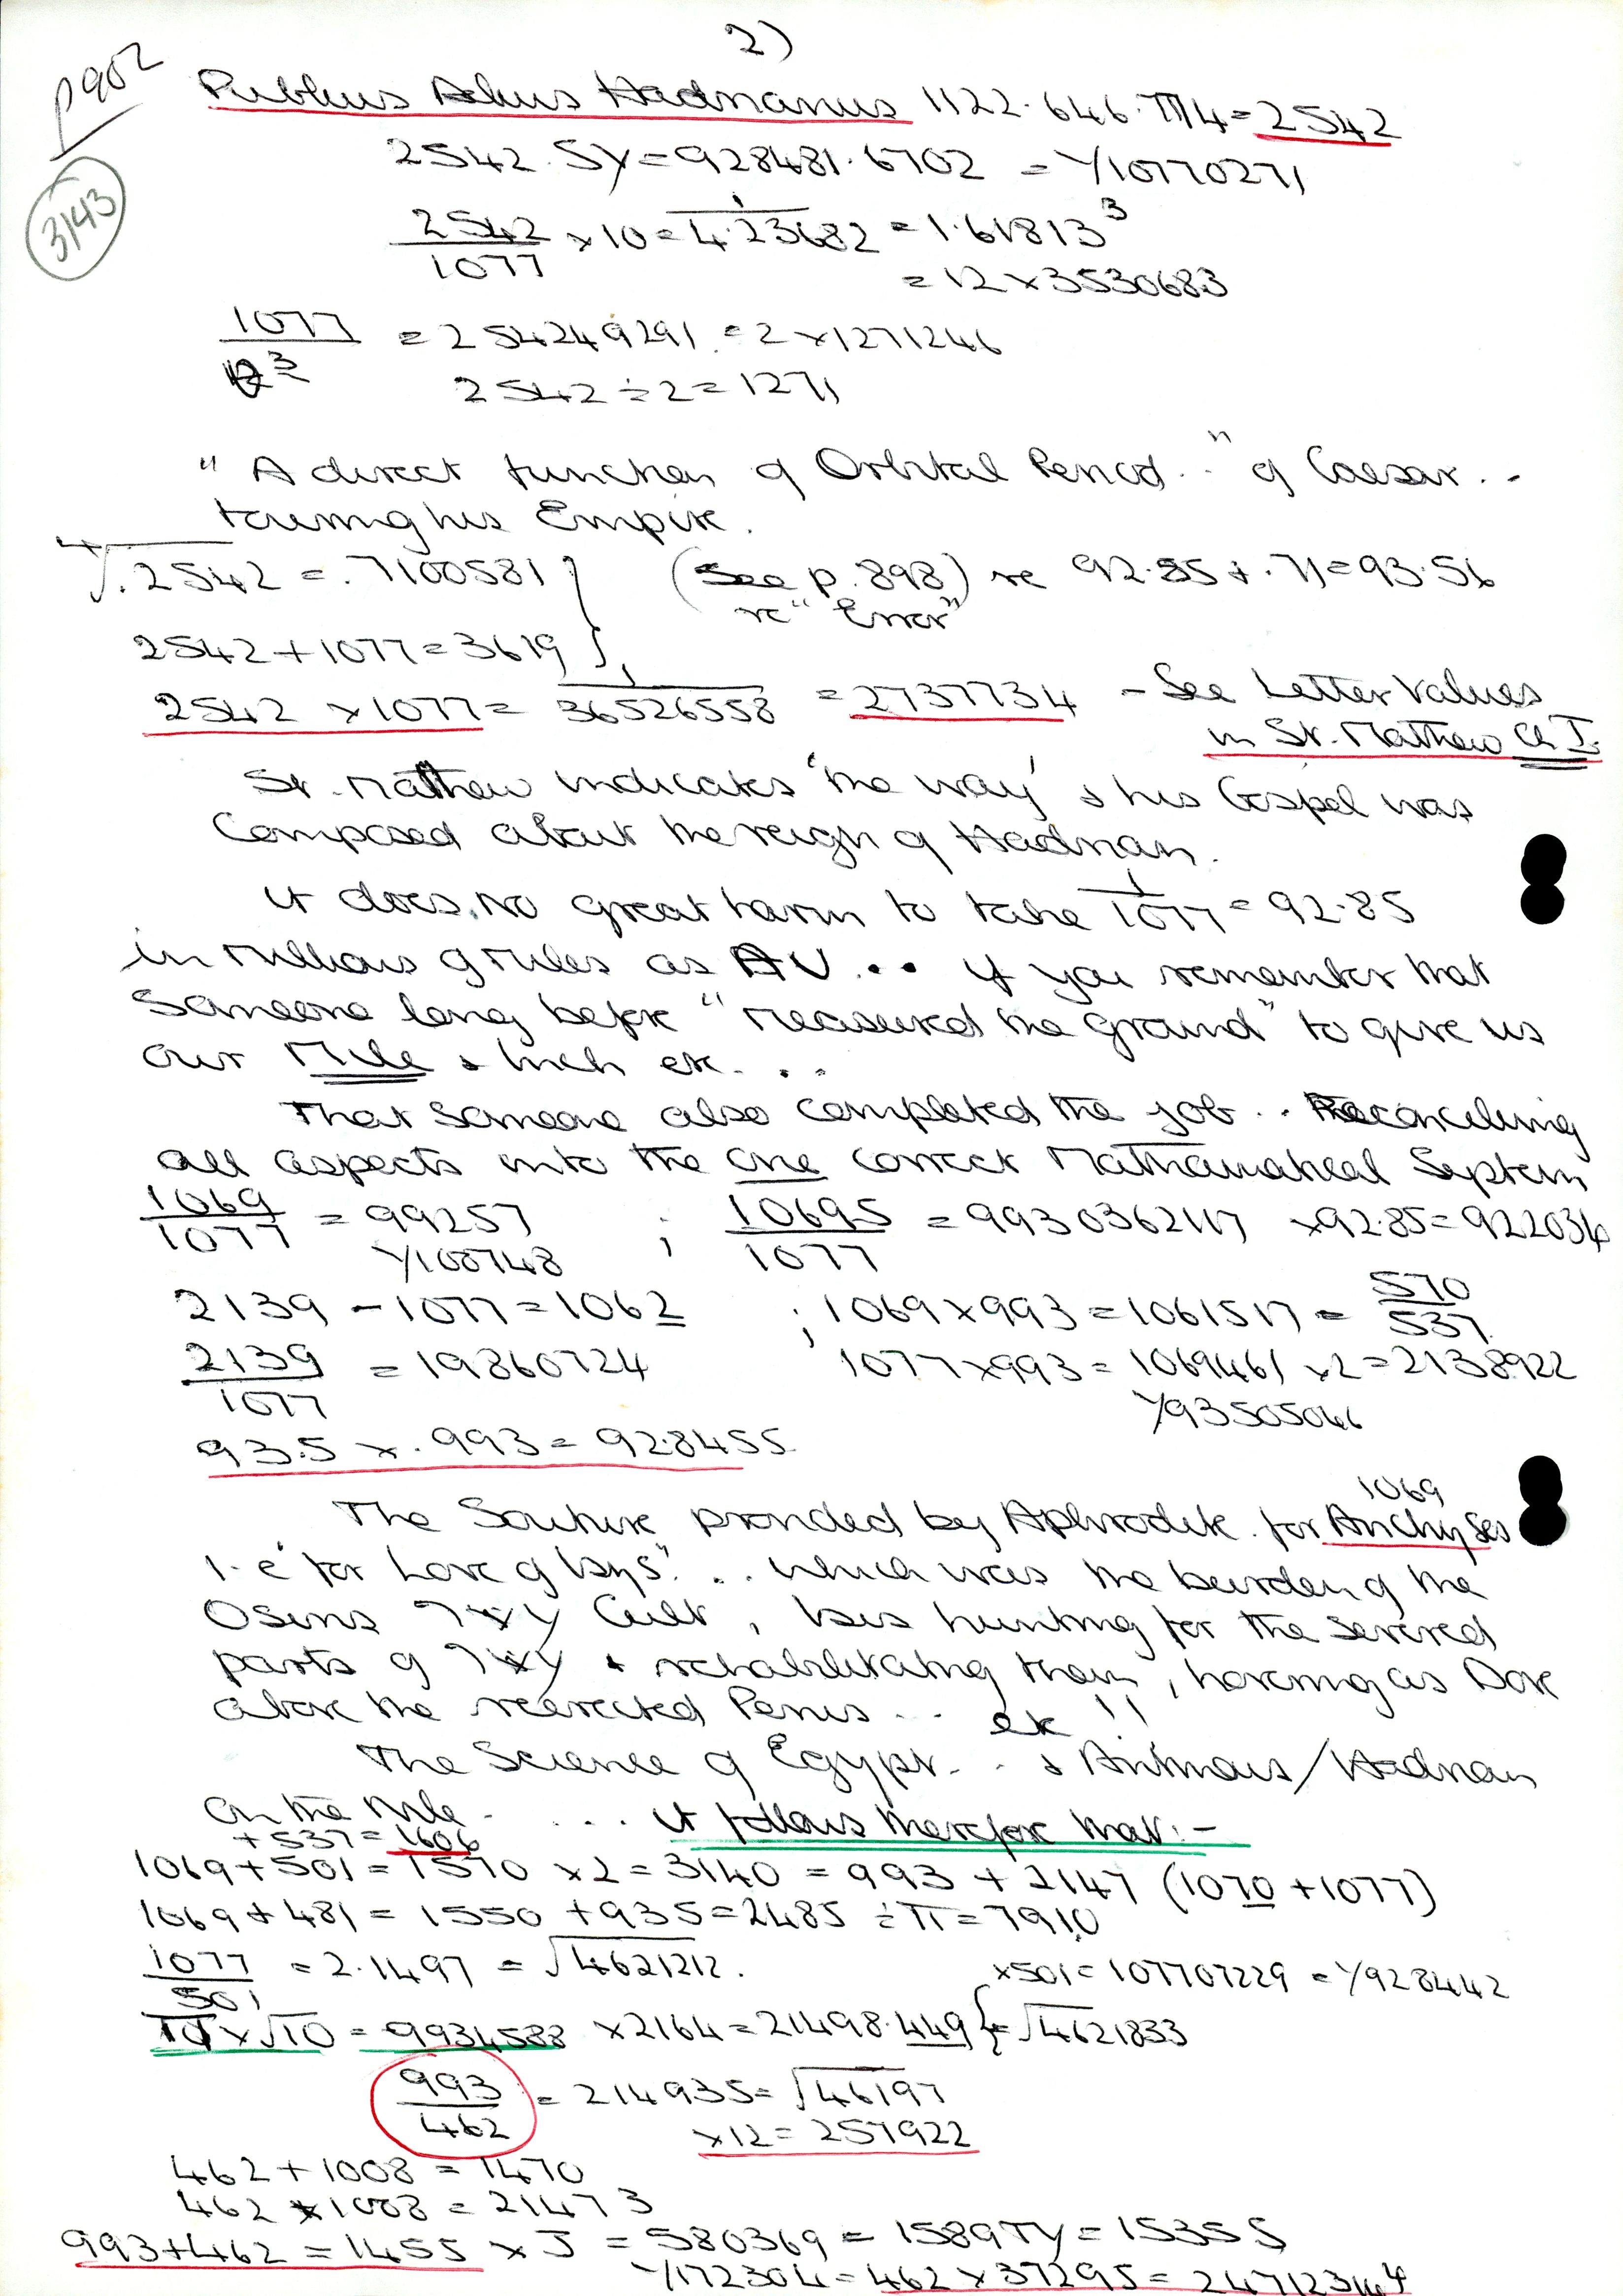 2)
p902
3143
Publius Aelius Hadrianus 1122.646.774=2542
2542.Sy=928481.6702 = y10770271
2542/1077 ×10=1/4.23682 = 1.61813³
= 12×3530683
1077/ ³ = 254249291. =2×1271246
2542÷2=1271
"A direct function of Orbital Period.." of Caesar..
touring his Empire.
⁴√.2542 = .7100581 } (See p.898) re 92.85+.71=93.56
re "Error"
2542+1077=3619
2542 ×1077= 1/36526558 = 2737734 - See Letter Values
in St. Matthew Ch I.
St. Matthew indicates 'the way' & his Gospel was
Composed about the reign of Hadrian.
It does no great harm to take 1/1077 = 92.85
in millions of miles as AU... if you remember that
Someone long before "measured the ground" to give us
our Mile & Inch etc...
That Someone also completed the job.. Reconciling
all aspects into the one correct Mathamatical System
1069/1077 = 99257 ; 10695/1077 = 9930362117 ×92.85=922036
y100748
2139-1077=1062 ; 1069×993=1061517= 570/537.
2139/1077 = 19860724 1077×993= 1069461 ×2=2138922
y93505046
93.5 × .993 = 92.8455
1069
The Souture provided by Aphrodite. for Anchyses
I.e "for Love of Isys"... which was the burden of the
Osiris Cult, Isis hunting for the severed
parts of & rehabilitating them, hovering as Dove
above the reerected Penis... etc!!
The Science of Egypt.. & Antinous/Hadrian
on the Nile .... it follows therefore that:-
+537=1606
1069+501=1570 ×2=3140 = 993 + 2147 (1070+1077)
1069+481=1550 +935=2485 ÷π=7910
1077/501 = 2.1497 = √4621212. ×501=107707229 =y928442
π×√10 = 9934588 ×2164=21498.449 } =√4621833
993/462 = 214935= √46197
×12= 257922
462+1008=1470
462 ×1008=21473
993+462=1455 ×J = 580369 = 1589πy=15355
y172304=462×37295= 24712314⁴